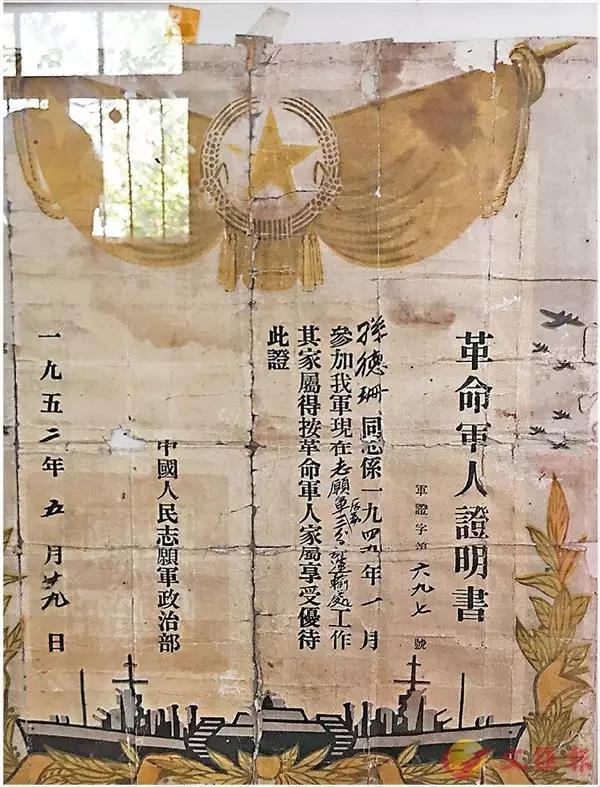 革命軍人證明書
軍證字第六九七號
孫德珊同志係一九四九年一月
參加我軍現在志願軍后勤三分部運輸處工作
其家屬得按革命軍人家屬享受優待
此證
中國人民志願軍政治部
一九五二年五月廿九日
文匯報